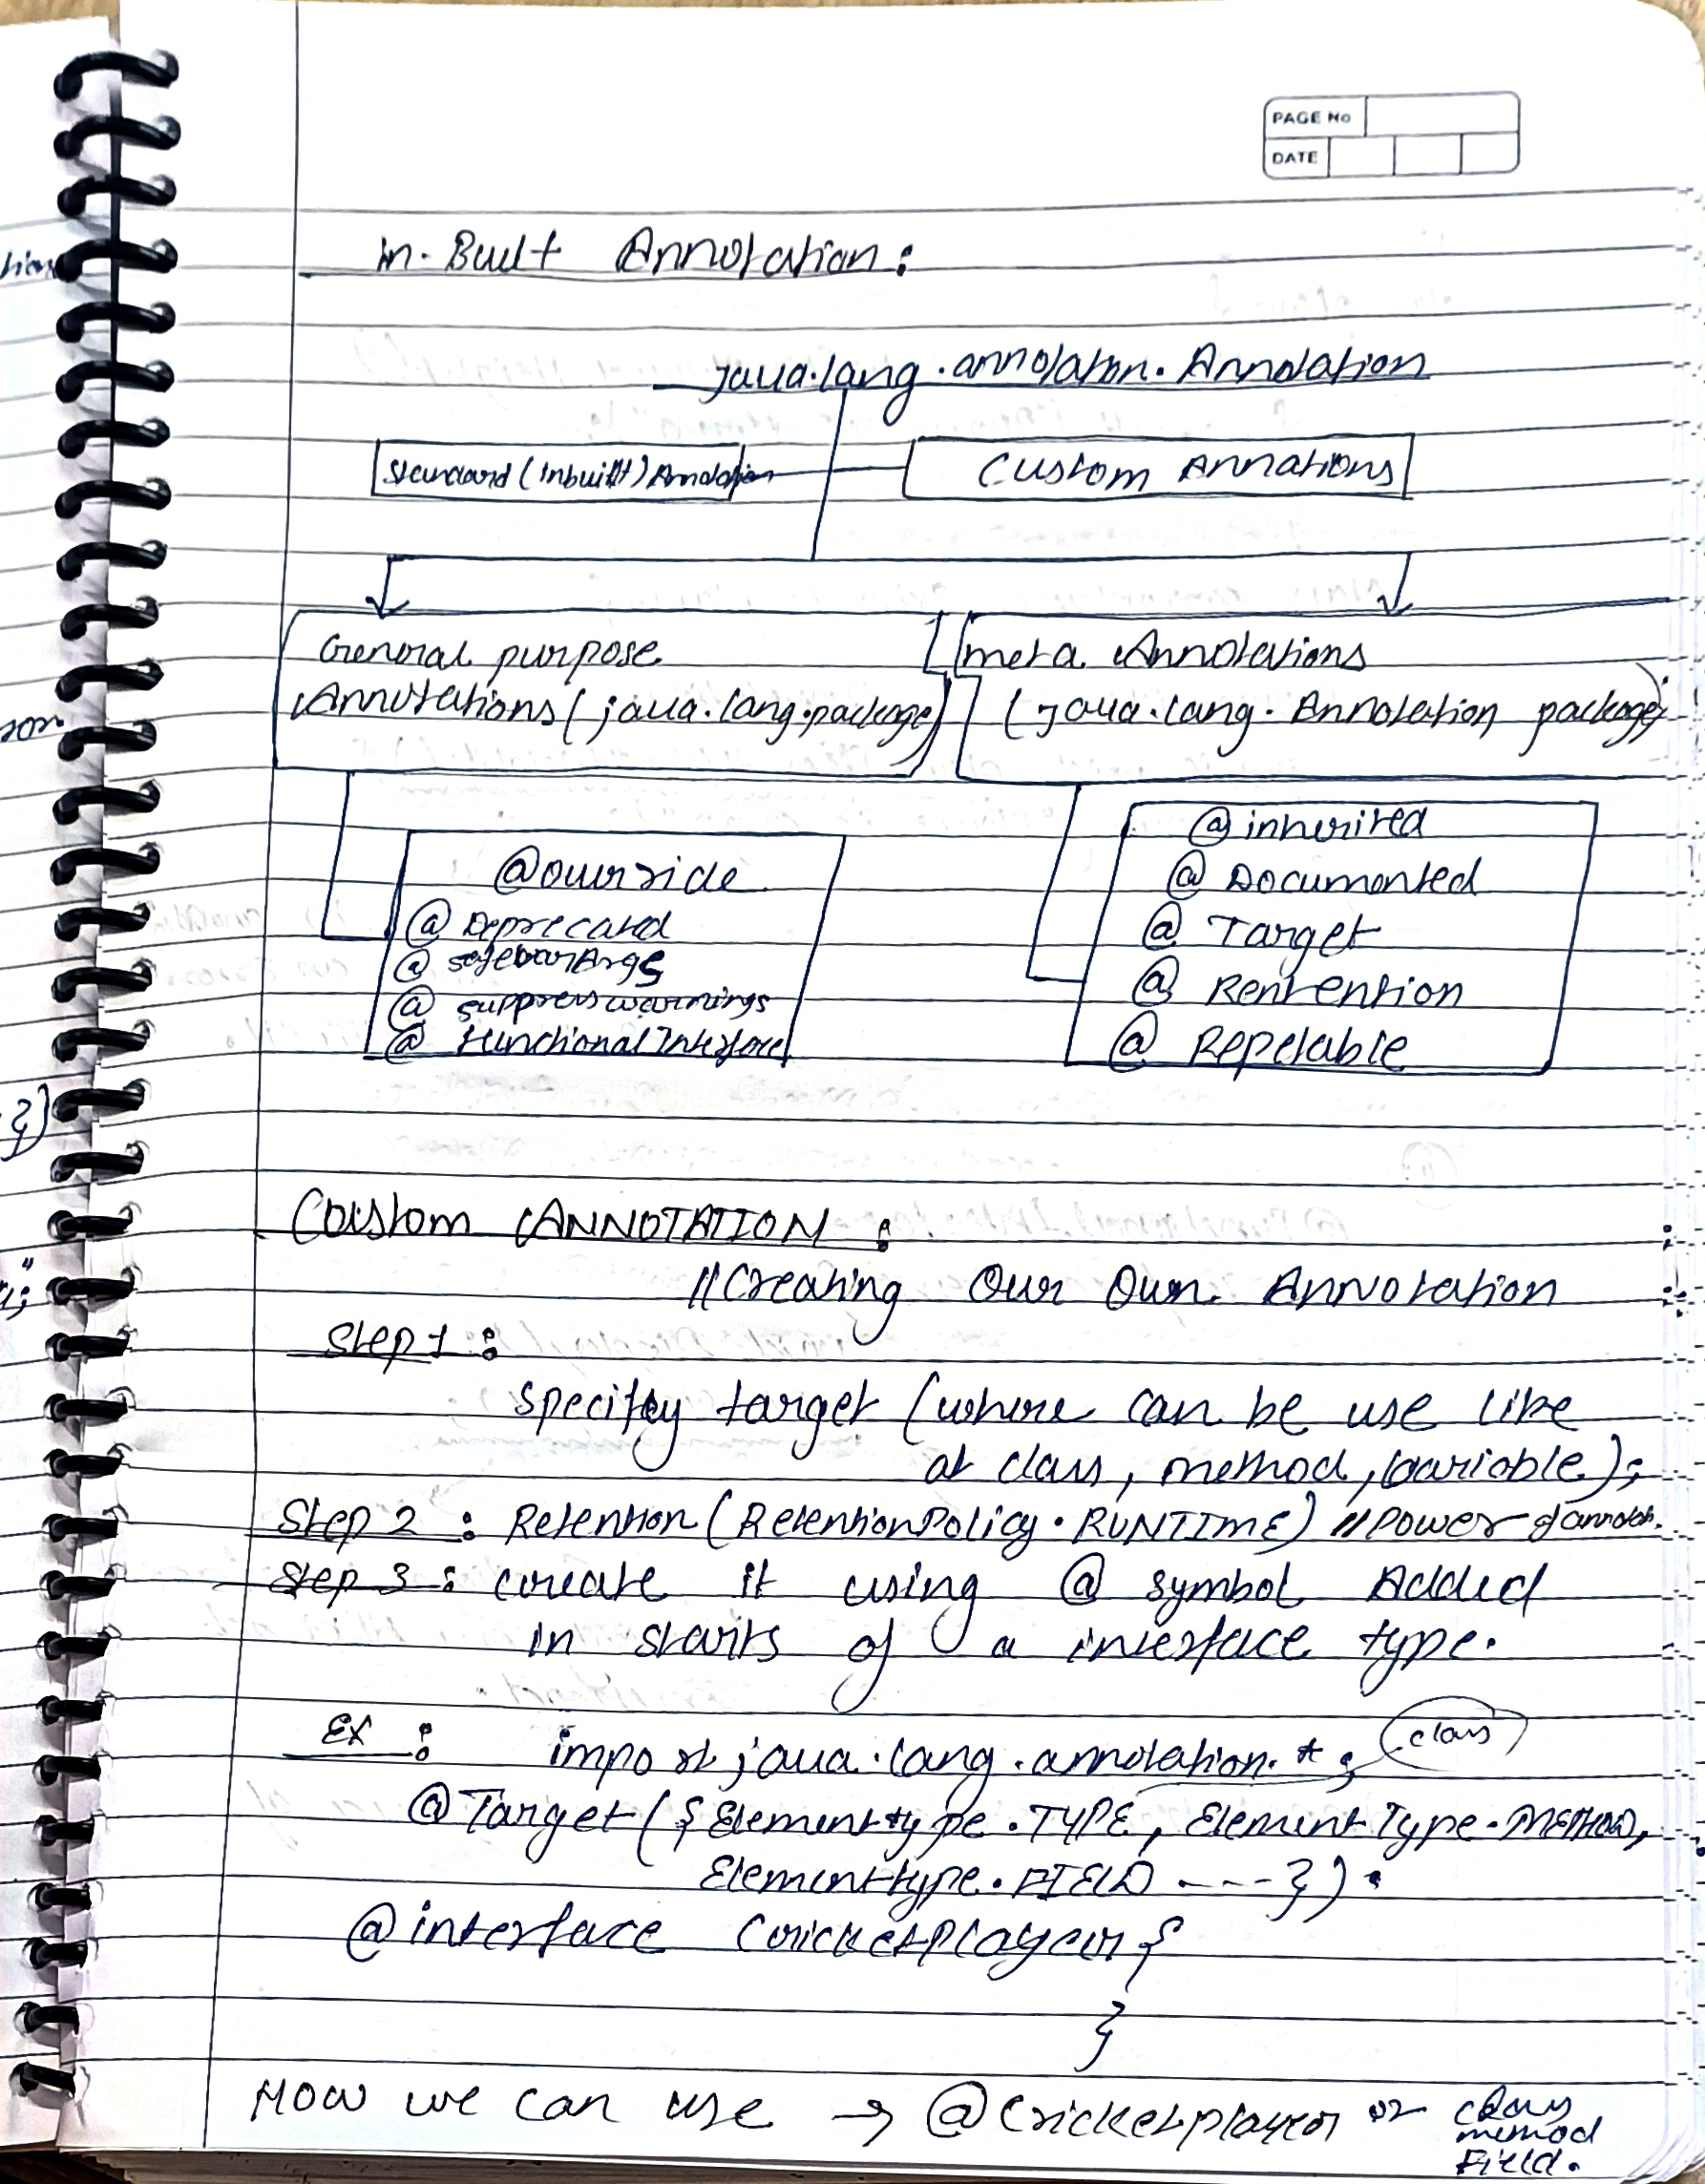 PAGE No
DATE
in-Built Annotation:
java.lang.annotation.Annotation
Standard (Inbuilt) Annotation
Custom Annations
General purpose
Annotations (java.lang.package)
meta Annotations
(java.lang.Annotation package)
@override
@ Deprecated
@ safevarArgs
@ suppresswarnings
@ functionalInterface
@ inherited
@ Documented
@ Target
@ Rentention
@ Repetable
Custom ANNOTATION :
//Creating Our Own Annotation
Step 1 :
specifty target (where can be use like
at class, method, variable);
Step 2 : Retention (RetentionPolicy.RUNTIME) //Power of
Step 3 : create it using @ symbol Added
in starts of a interface type.
Ex : import java.lang.annotation.*;
class
@Target({Elementtype.TYPE, ElementType.METHOD,
Elementtype.FIELD ---}).
@interface Cricketplayer {
}
How we can use → @cricketplayer or class
method
Field.